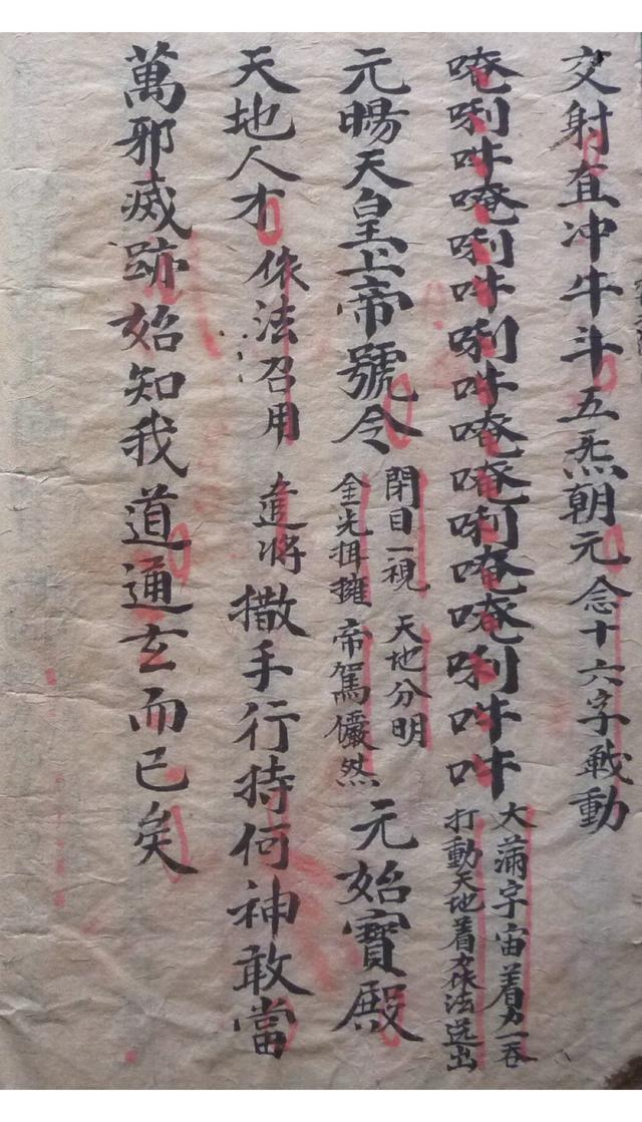 交射直冲牛斗五炁朝元念十六字戰動
唵唎吽唵唎吽唎吽唵唵唎唵唵唎吽吽 大滿字宙着力一吞 打動天地着力依法迸出
元暘天皇上帝號令 閉目一視 天地分明 金光揖擁 帝駕儼然 元始寶殿
天地人才 依法召用 進將 撒手行持何神敢當
萬邪滅跡始知我道通玄而已矣